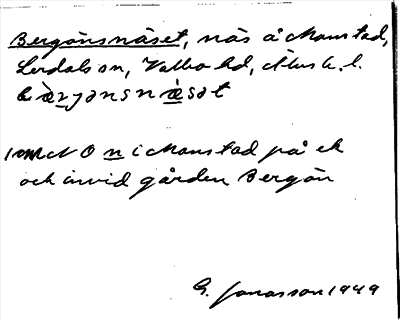 Bergönsnäset, näs å Manstad,
Lerdals sn, Valbo hd, Älvsb. l.
bæ̀rjənsnæ̀sət
1 km NO n i Manstad på ek
och invid gården Bergön
G. Jonasson 1949